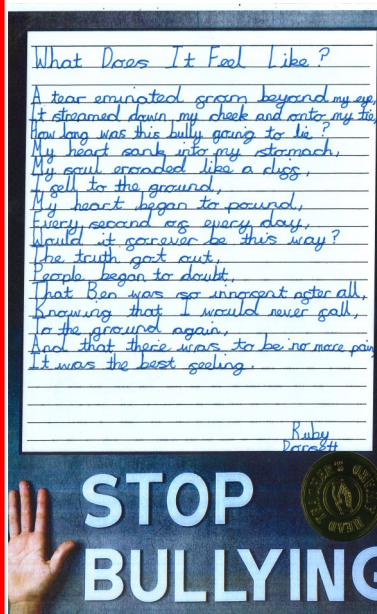 What Does It Feel Like?
A tear eminated from beyond my eye,
It streamed down my cheek and onto my tie,
How long was this bully going to lie?
My heart sank into my stomach,
My soul eroaded like a cliff,
I fell to the ground,
My heart began to pound,
Every second of every day,
Would it forever be this way?
The truth got out,
People began to doubt,
That Ben was so innocent after all,
Knowing that I would never fall,
To the ground again,
And that there was to be no more pain
It was the best feeling.
Ruby
HEAD TEACHER'S
STOP
BULLYING